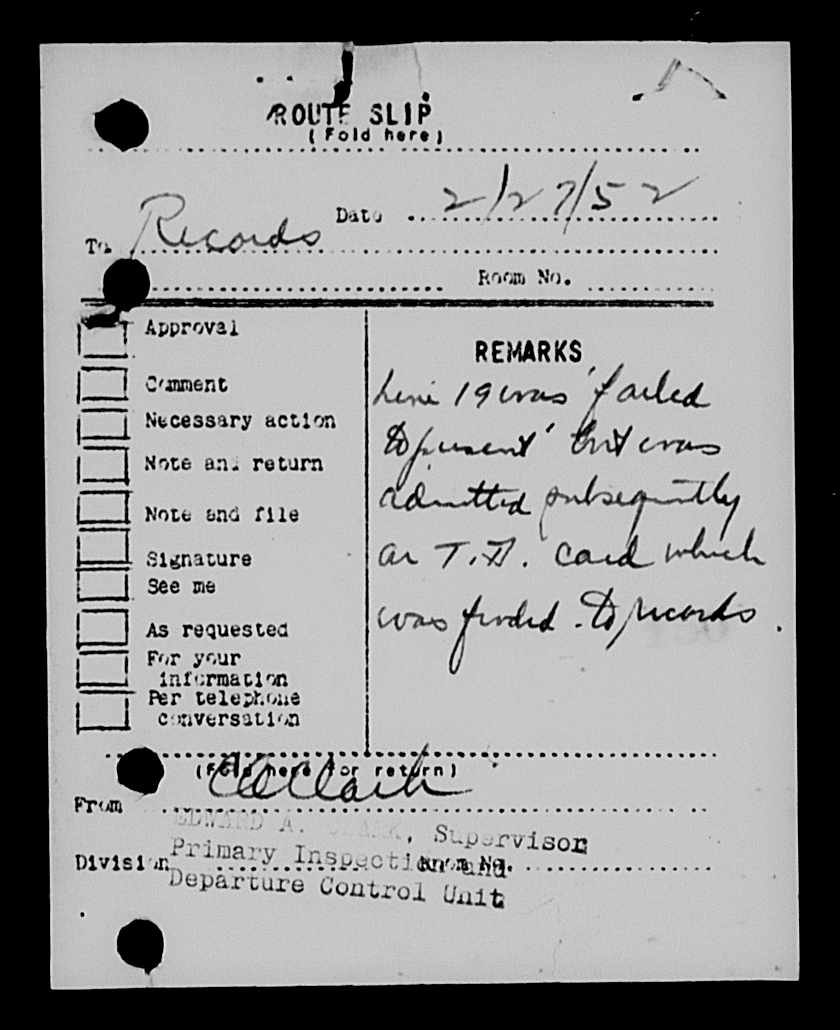 ROUTE SLIP
(Fold here)
Date 2/27/52
To Records
Room No.
Approval
Comment
Necessary action
Note and return
Note and file
Signature
See me
As requested
For your
information
Per telephone
conversation
REMARKS
Line 19 was 'failed
to present' but was
admitted subsequently
on T.A. card which
was fwded. to records.
(Fold here for return)
From EA Clark
EDWARD A. CLARK, Supervisor
Primary Inspection and
Division Room No.
Departure Control Unit